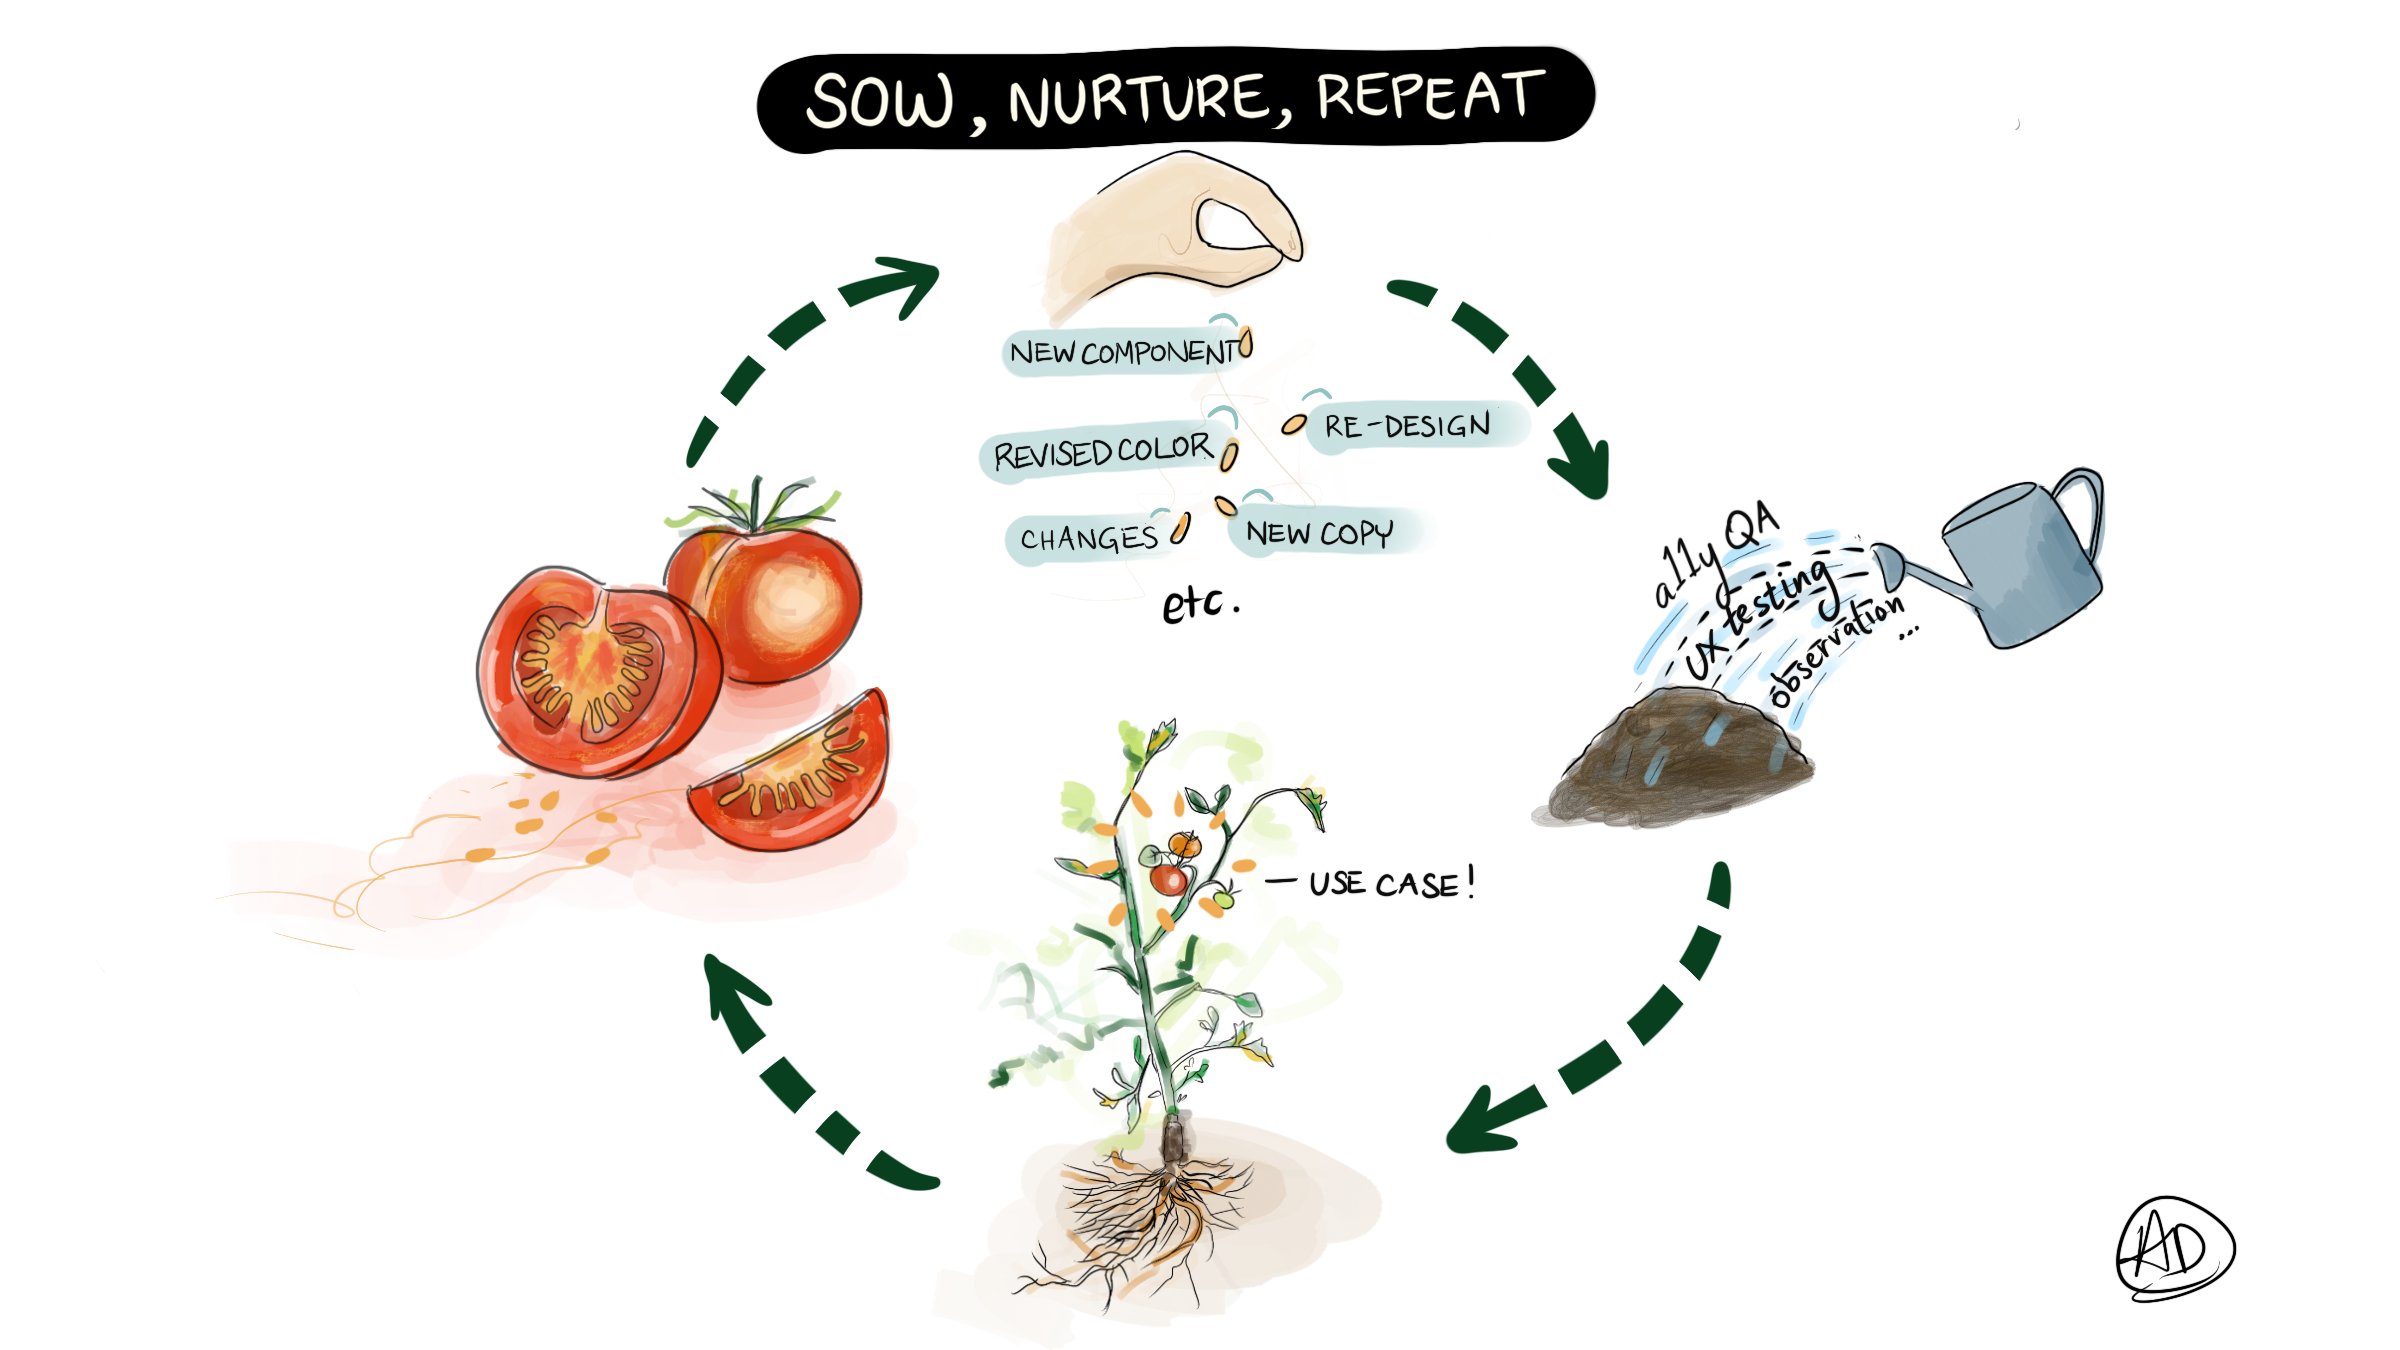 SOW, NURTURE, REPEAT
NEW COMPONENT
RE-DESIGN
REVISED COLOR
CHANGES
NEW COPY
etc.
a11y QA
UX testing
observation
...
— USE CASE!
AD